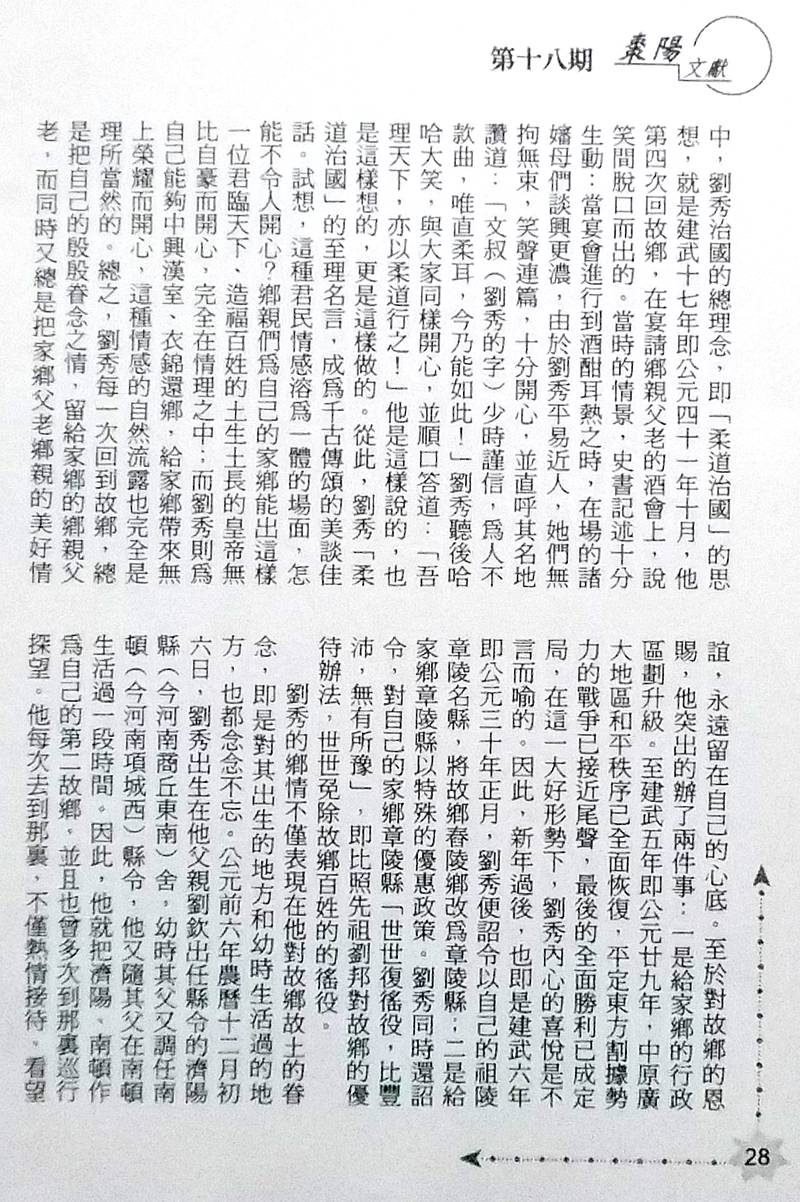 第十八期
棗陽
文獻
中，劉秀治國的總理念，即「柔道治國」的思
想，就是建武十七年即公元四十一年十月，他
第四次回故鄉，在宴請鄉親父老的酒會上，說
笑間脫口而出的。當時的情景，史書記述十分
生動：當宴會進行到酒酣耳熱之時，在場的諸
嬸母們談興更濃，由於劉秀平易近人，她們無
拘無束，笑聲連篇，十分開心，並直呼其名地
讚道：「文叔（劉秀的字）少時謹信，爲人不
款曲，唯直柔耳，今乃能如此！」劉秀聽後哈
哈大笑，與大家同樣開心，並順口答道：「吾
理天下，亦以柔道行之！」他是這樣說的，也
是這樣想的，更是這樣做的。從此，劉秀「柔
道治國」的至理名言，成爲千古傳頌的美談佳
話。試想，這種君民情感溶爲一體的場面，怎
能不令人開心？鄉親們爲自己的家鄉能出這樣
一位君臨天下、造福百姓的土生土長的皇帝無
比自豪而開心，完全在情理之中；而劉秀則爲
自己能夠中興漢室、衣錦還鄉，給家鄉帶來無
上榮耀而開心，這種情感的自然流露也完全是
理所當然的。總之，劉秀每一次回到故鄉，總
是把自己的殷殷眷念之情，留給家鄉的鄉親父
老，而同時又總是把家鄉父老鄉親的美好情
誼，永遠留在自己的心底。至於對故鄉的恩
賜，他突出的辦了兩件事：一是給家鄉的行政
區劃升級。至建武五年即公元廿九年，中原廣
大地區和平秩序已全面恢復，平定東方割據勢
力的戰爭已接近尾聲，最後的全面勝利已成定
局，在這一大好形勢下，劉秀內心的喜悅是不
言而喻的。因此，新年過後，也即是建武六年
即公元三十年正月，劉秀便詔令以自己的祖陵
章陵名縣，將故鄉舂陵鄉改爲章陵縣；二是給
家鄉章陵縣以特殊的優惠政策。劉秀同時還詔
令，對自己的家鄉章陵縣「世世復徭役，比豐
沛，無有所豫」，即比照先祖劉邦對故鄉的優
待辦法，世世免除故鄉百姓的的徭役。
劉秀的鄉情不僅表現在他對故鄉故土的眷
念，即是對其出生的地方和幼時生活過的地
方，也都念念不忘。公元前六年農曆十二月初
六日，劉秀出生在他父親劉欽出任縣令的濟陽
縣（今河南商丘東南）舍，幼時其父又調任南
頓（今河南項城西）縣令，他又隨其父在南頓
生活過一段時間。因此，他就把濟陽、南頓作
爲自己的第二故鄉，並且也曾多次到那裏巡行
探望。他每次去到那裏，不僅熱情接待、看望
28